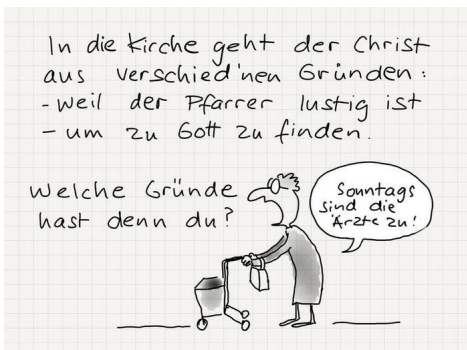 In die Kirche geht der Christ
aus verschied'nen Gründen:
- weil der Pfarrer lustig ist
- um zu Gott zu finden.
Welche Gründe
hast denn du?
Sonntags
sind die
Ärzte zu!